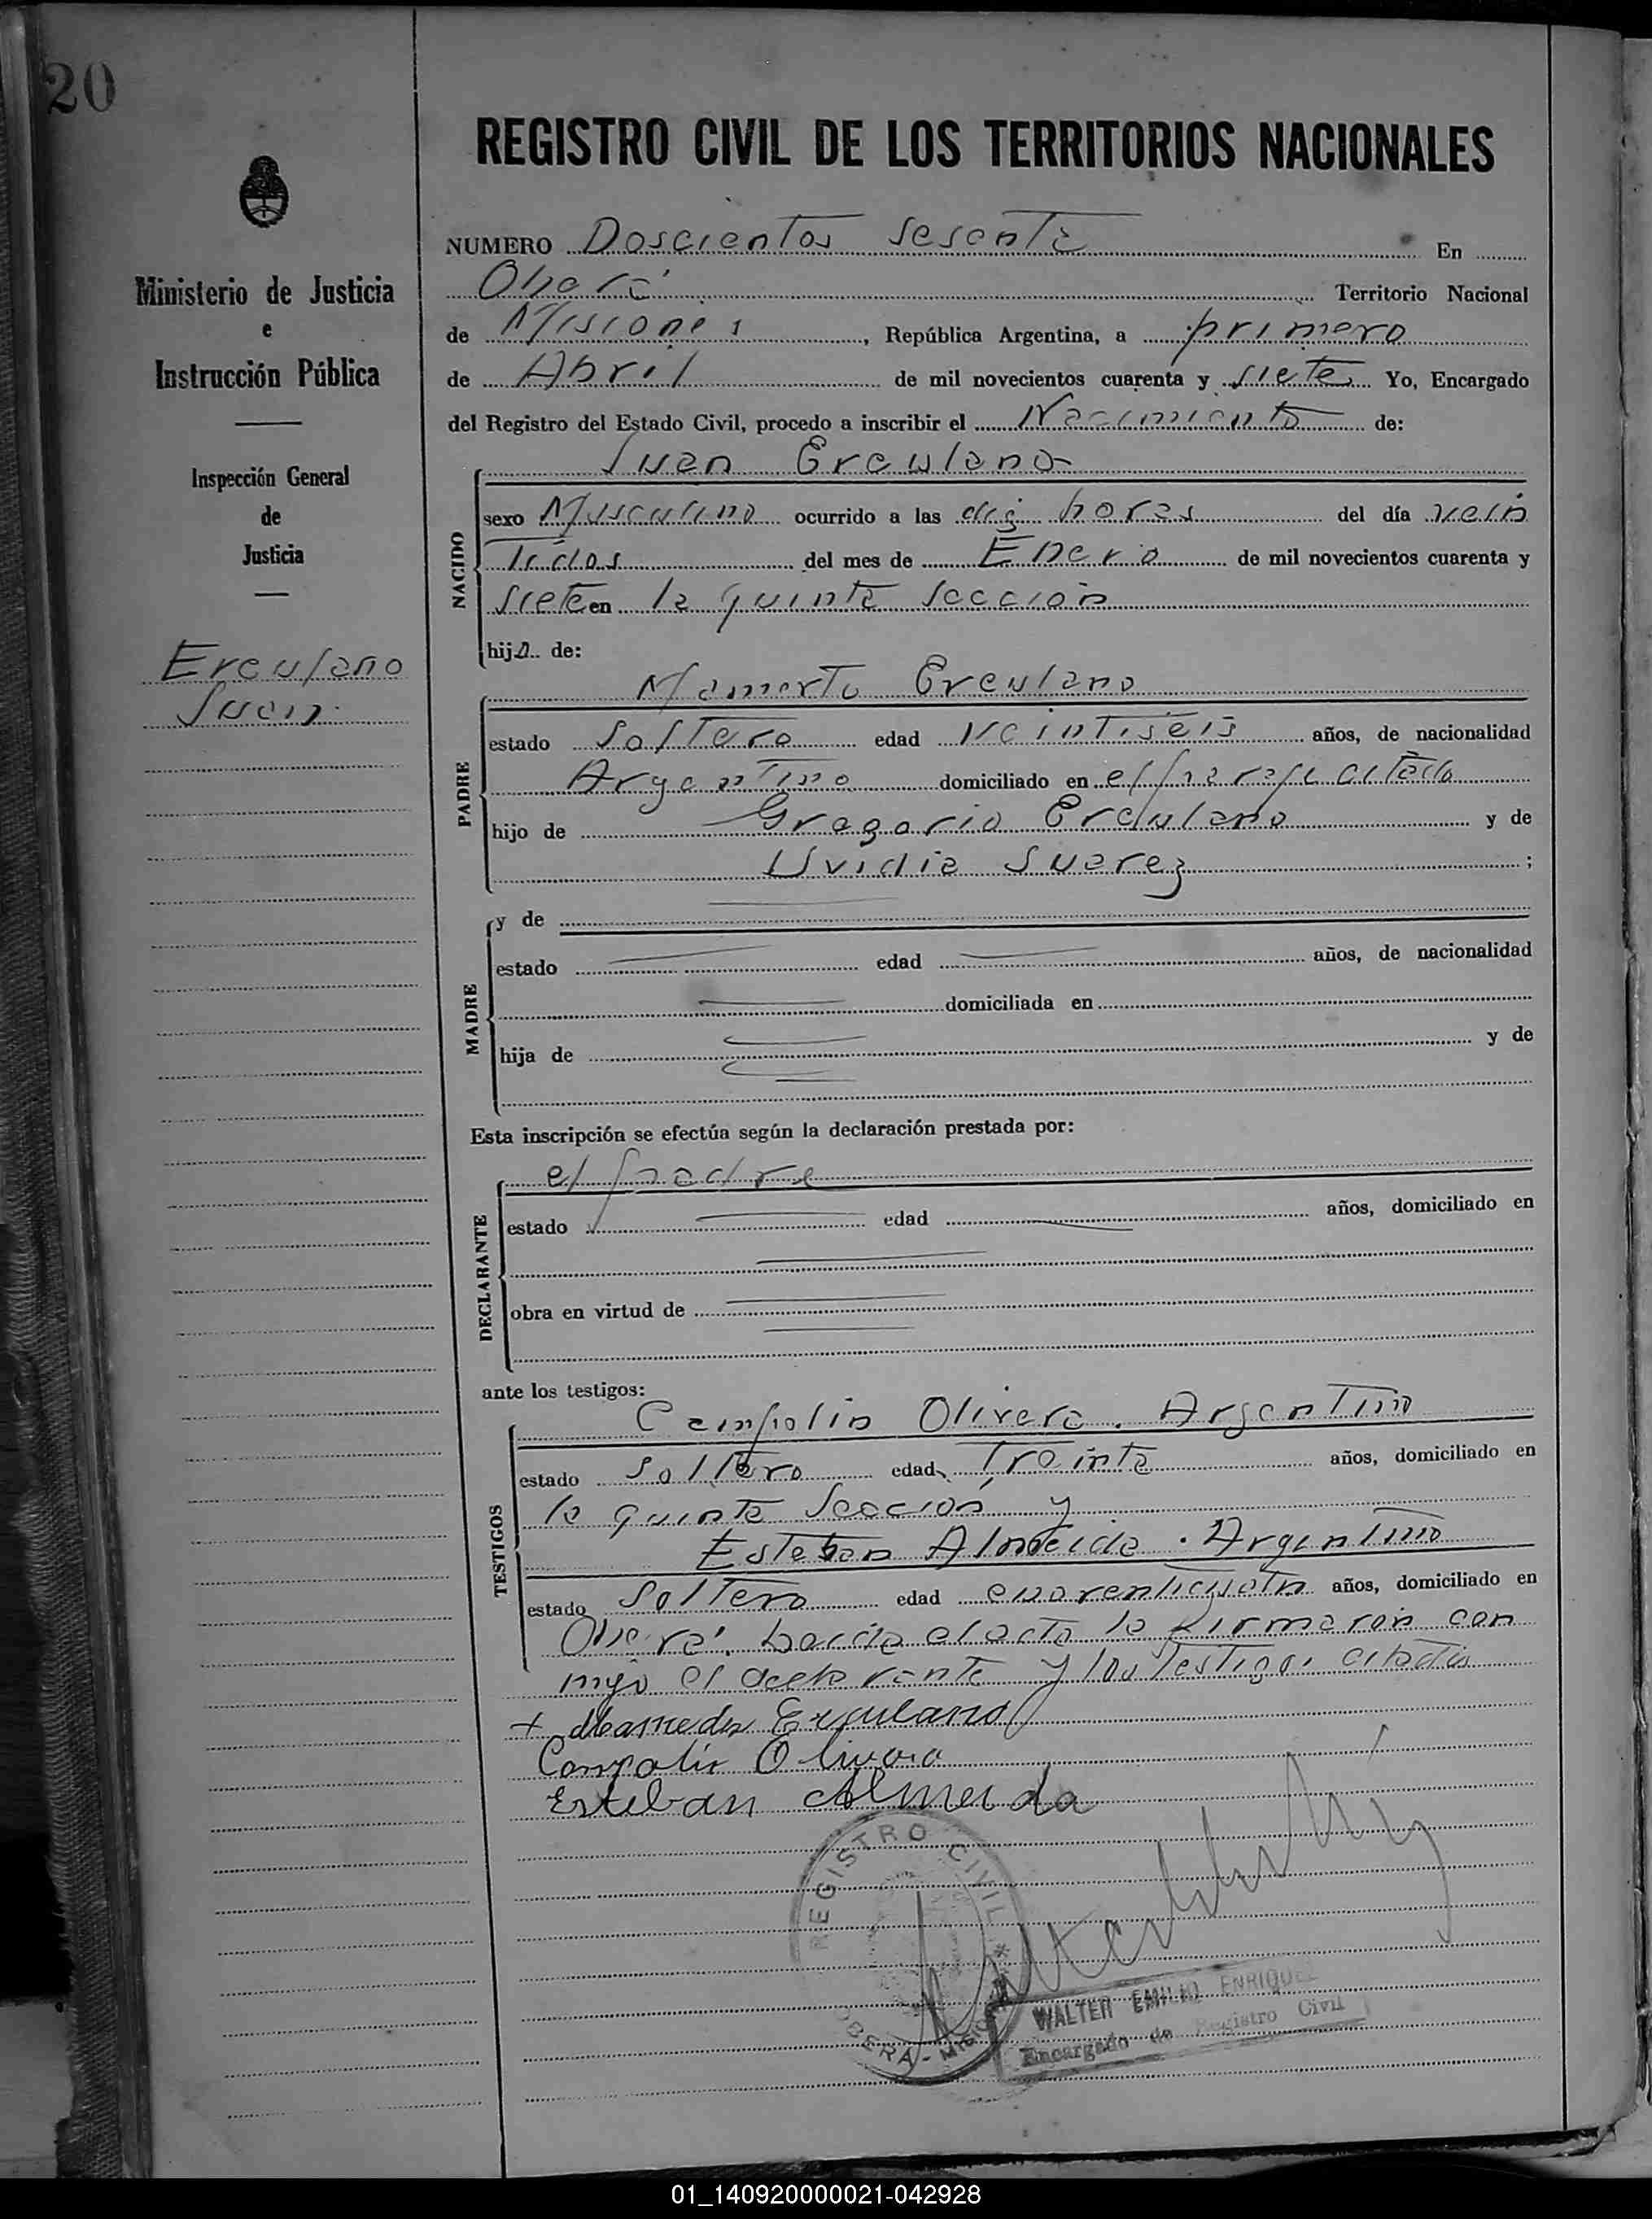 20
REGISTRO CIVIL DE LOS TERRITORIOS NACIONALES
Ministerio de Justicia
e
Instrucción Pública
Inspección General
de
Justicia
Erculano
Juan
NUMERO Doscientos sesenta En
Oberá Territorio Nacional
de Misiones, República Argentina, a primero
de Abril de mil novecientos cuarenta y siete Yo, Encargado
del Registro del Estado Civil, procedo a inscribir el Nacimiento de:
Juan Erculano
NACIDO
sexo Masculino ocurrido a las diez horas del día vein
tidos del mes de Enero de mil novecientos cuarenta y
siete en la quinta sección
hijo de:
PADRE
Mamerto Erculano
estado Soltero edad veintiseis años, de nacionalidad
Argentino domiciliado en el citado
hijo de Gregorio Erculano y de
Uvidia Suarez ;
MADRE
y de
estado edad años, de nacionalidad
domiciliada en
hija de y de
Esta inscripción se efectúa según la declaración prestada por:
DECLARANTE
el padre
estado edad años, domiciliado en
obra en virtud de
ante los testigos:
TESTIGOS
Campolin Olivera. Argentino
estado Soltero edad Treinta años, domiciliado en
la quinta sección y
Esteban Almeida. Argentino
estado Soltero edad años, domiciliado en
Oberá. el acta la firmaron con
migo el declarante y los testigos citados
+ Erculano
Campolin Olivera
Esteban Almeida
REGISTRO CIVIL
OBERA - MISIONES
WALTER EMILIO ENRIQUE
Encargado de Registro Civil
01_140920000021-042928